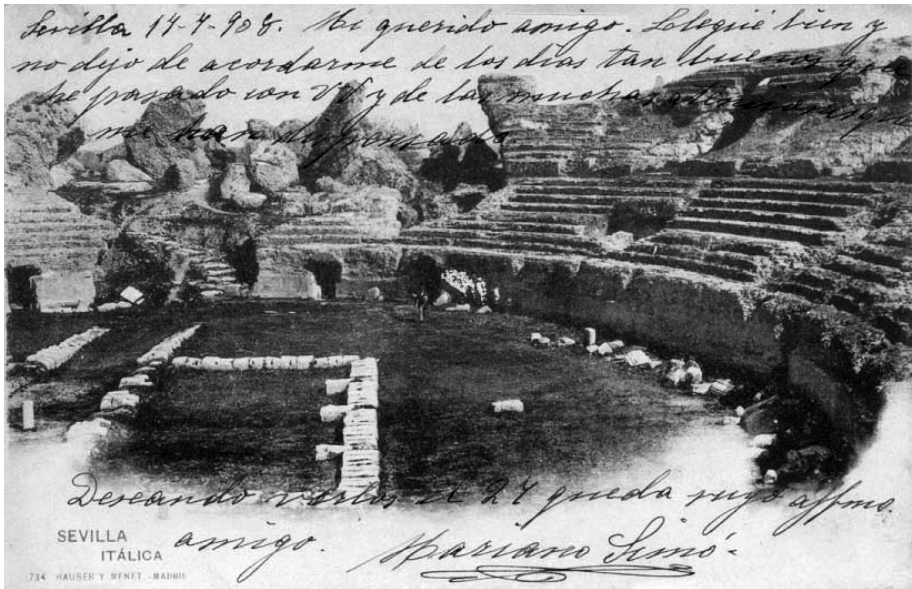 Sevilla 14-7-908. Mi querido amigo. Llegué bien y
no dejo de acordarme de los dias tan buenos que
he pasado con VV y de las muchas atenciones que
me han dispensado
Deseando verlos el 24 queda suyo affmo.
amigo. Mariano Simó-
SEVILLA
ITÁLICA
734 HAUSER Y MENET.-MADRID